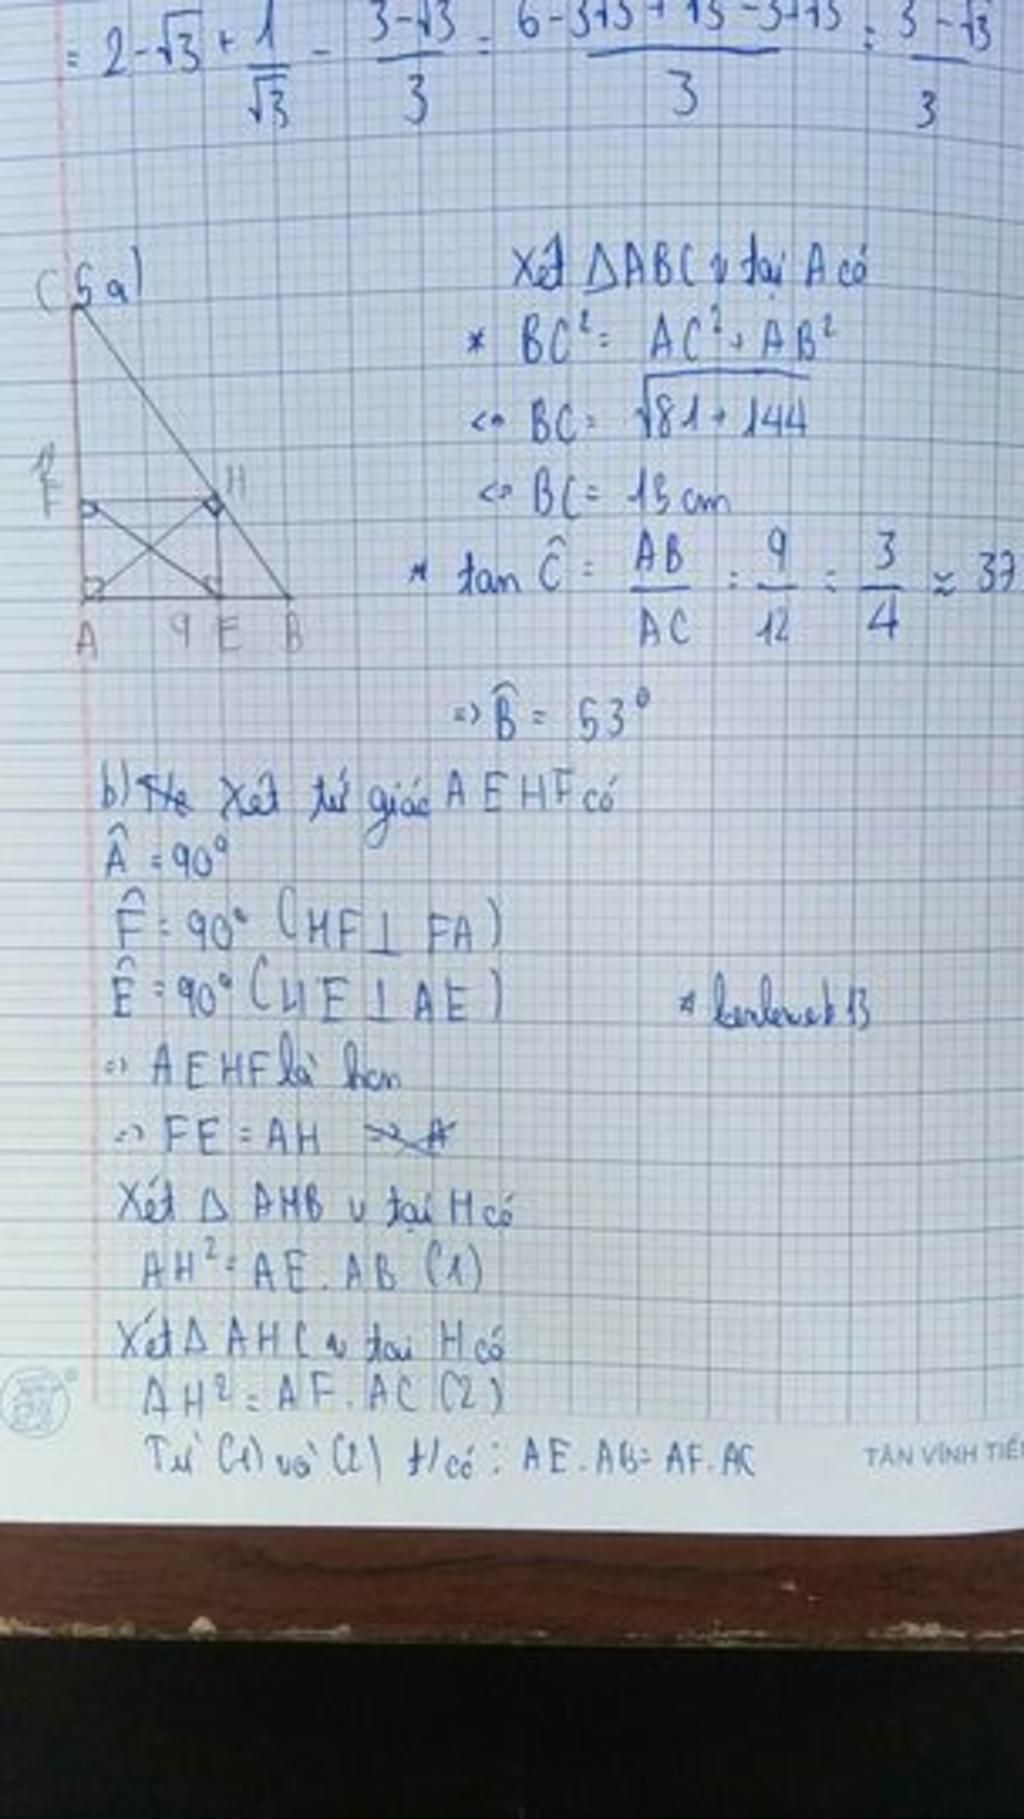 = 2 - √3 + 1/√3 - (3-√3)/3 = (6 - 3√3 + √3 - 3 + √3)/3 = (3 - √3)/3
5 a)
C
Xét ΔABC v tại A có
* BC² = AC² + AB²
<=> BC = √(81 + 144)
<=> BC = 15 cm
F H
* tan Ĉ = AB/AC = 9/12 = 3/4 ≈ 37
A 9 E B
=> B̂ = 53°
b) Xét tứ giác AEHF có
Â = 90°
F̂ = 90° (HF ⊥ FA)
Ê = 90° (HE ⊥ AE)
=> AEHF là hcn
=> FE = AH
Xét Δ AHB v tại H có
AH² = AE . AB (1)
Xét Δ AHC v tại H có
AH² = AF . AC (2)
Từ (1) và (2) t/có : AE . AB = AF . AC
TÂN VĨNH TIẾN